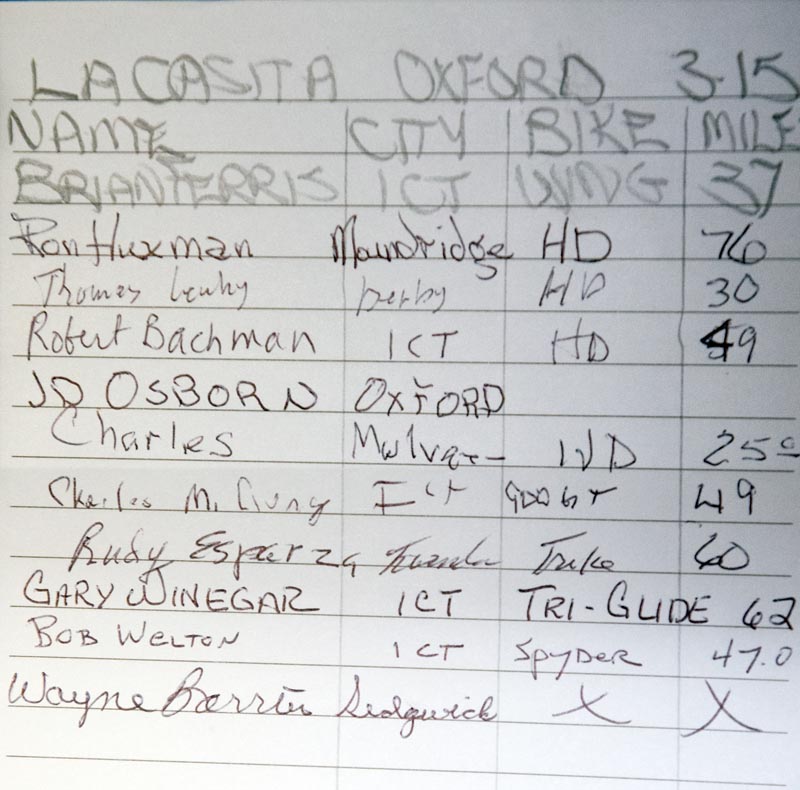 LA CASITA OXFORD 3-15
NAME CITY BIKE MILE
BRIAN FERRIS ICT WING 37
Ron Huxman Moundridge HD 76
Thomas Derby HD 30
Robert Bachman ICT HD 49
JD OSBORN OXFORD
Charles Mulvane IND 25
Charles McClung ICT 49
Rudy Esparza Trike 60
GARY WINEGAR ICT TRI-GLIDE 62
BOB WELTON ICT SPYDER 47.0
Wayne Sedgwick X X